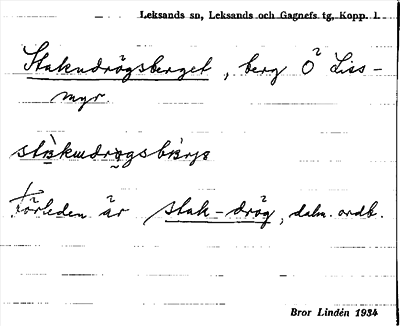 Leksands sn, Leksands och Gagnefs tg, Kopp. l.
Stakudrögsberget, berg O² Liss-
myr.
Förleden är stak-drög, dalm. ordb.
Bror Lindén 1934